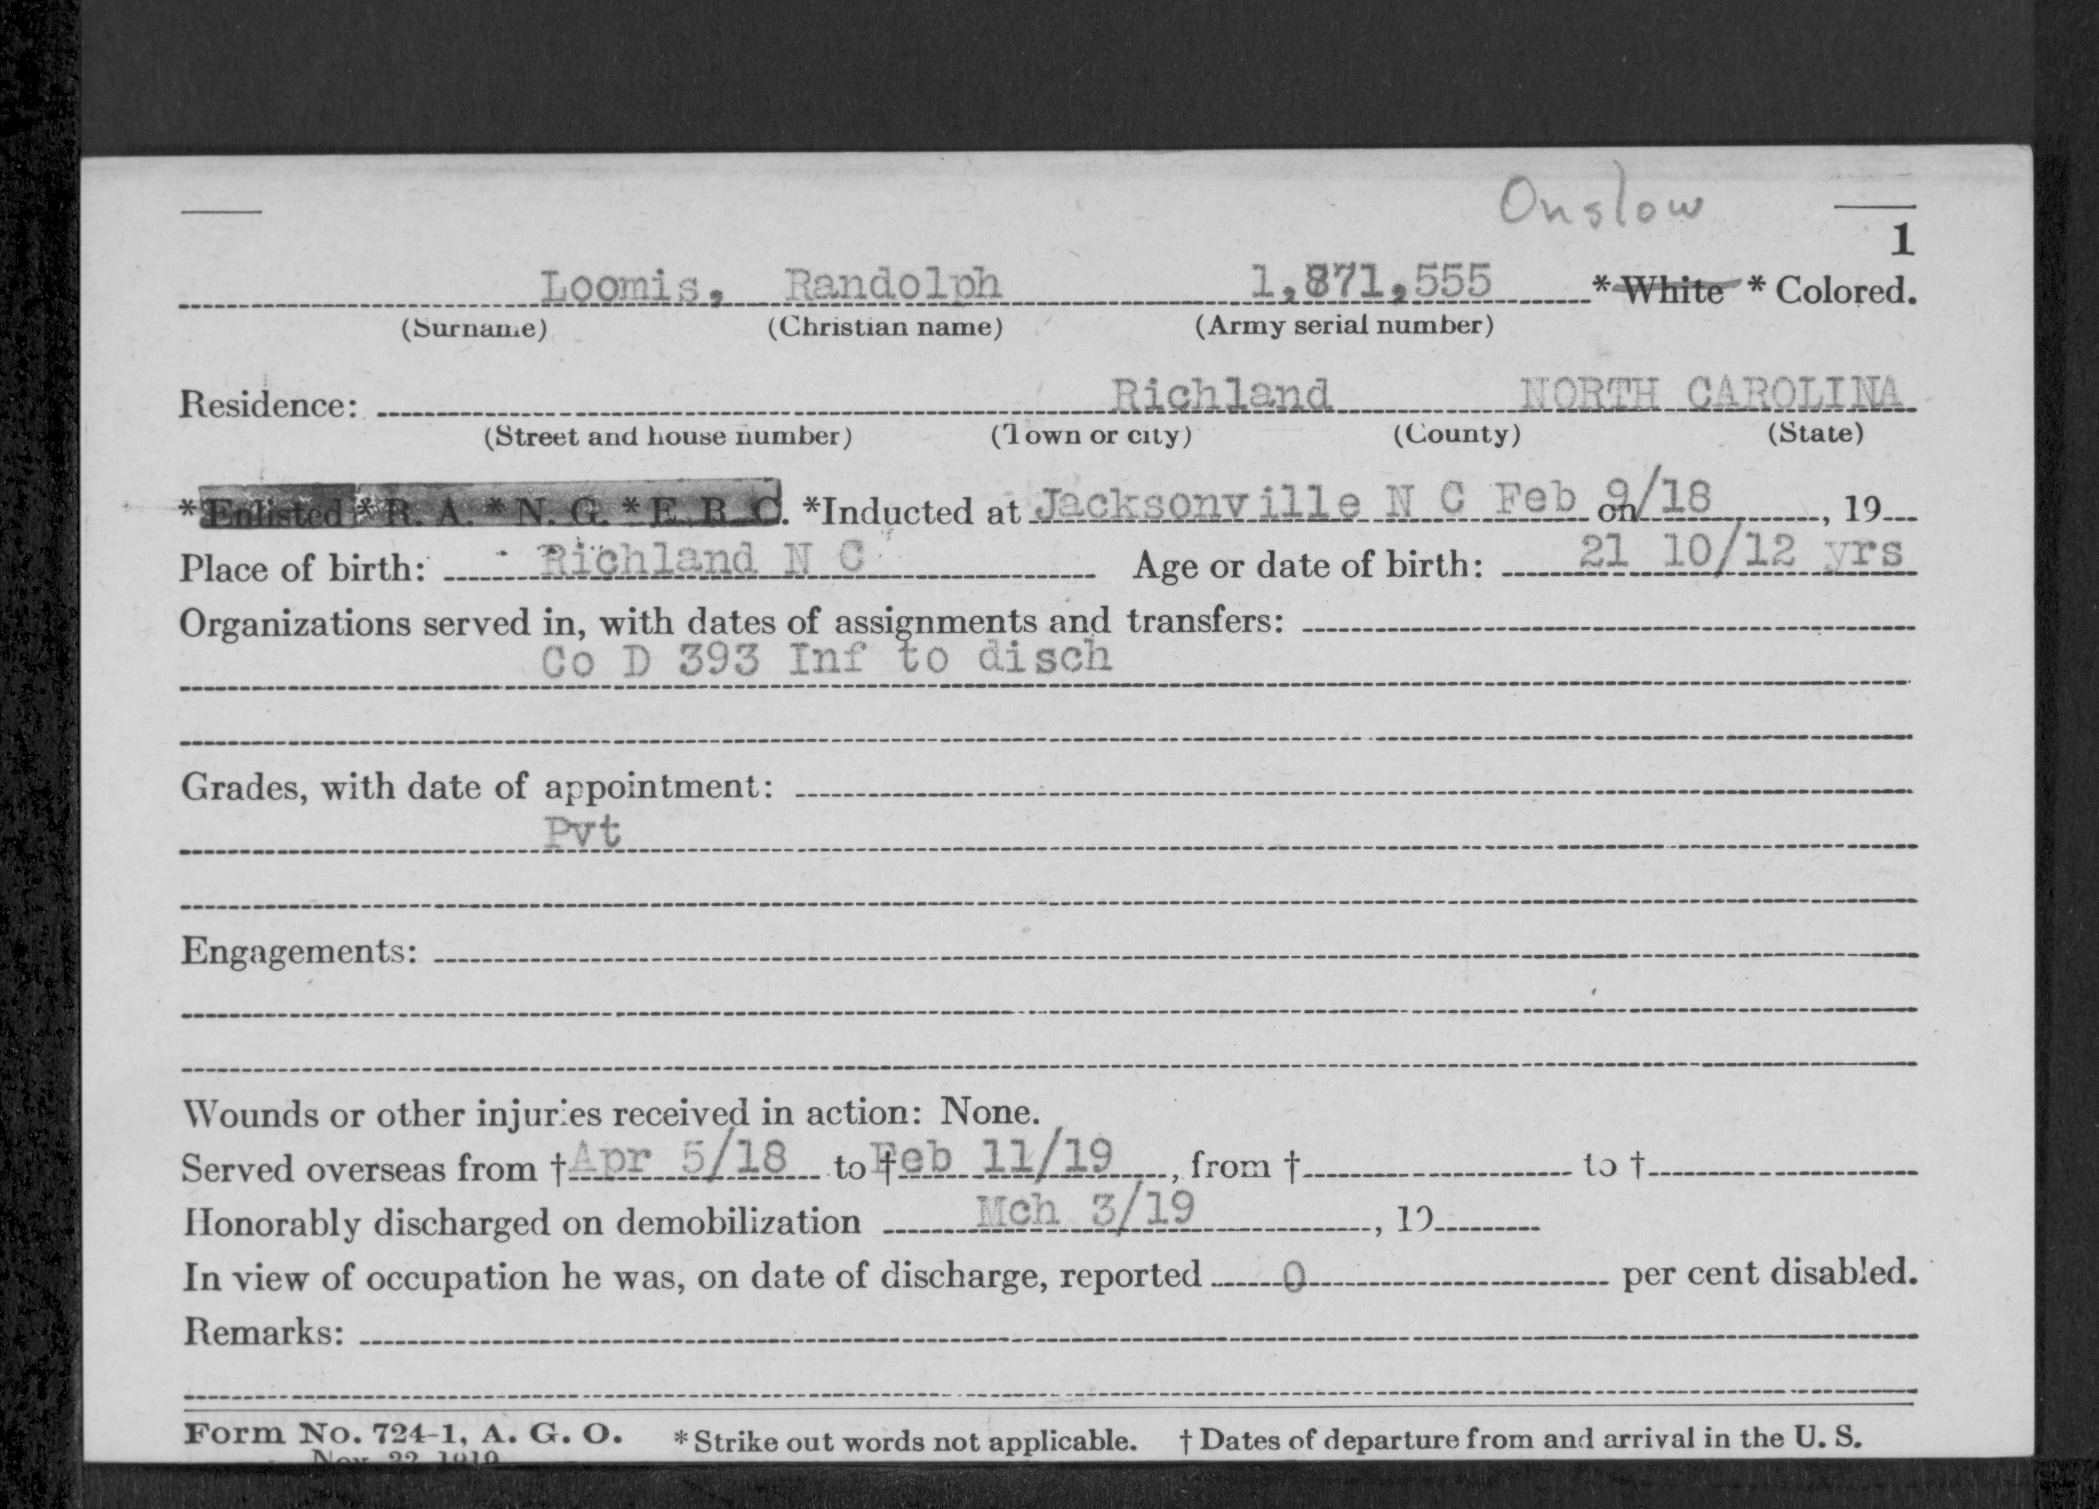 Onslow
1
Loomis, Randolph 1,871,555 * White * Colored.
(Surname) (Christian name) (Army serial number)
Residence: Richland NORTH CAROLINA
(Street and house number) (Town or city) (County) (State)
*Enlisted *R. A. *N. G. *E. R. C. *Inducted at Jacksonville N C Feb 9/18 on , 19
Place of birth: Richland N C Age or date of birth: 21 10/12 yrs
Organizations served in, with dates of assignments and transfers:
Co D 393 Inf to disch
Grades, with date of appointment:
Pvt
Engagements:
Wounds or other injuries received in action: None.
Served overseas from † Apr 5/18 to † Feb 11/19, from † to †
Honorably discharged on demobilization Mch 3/19, 19
In view of occupation he was, on date of discharge, reported 0 per cent disabled.
Remarks:
Form No. 724-1, A. G. O. * Strike out words not applicable. † Dates of departure from and arrival in the U. S.
Nov. 22, 1919